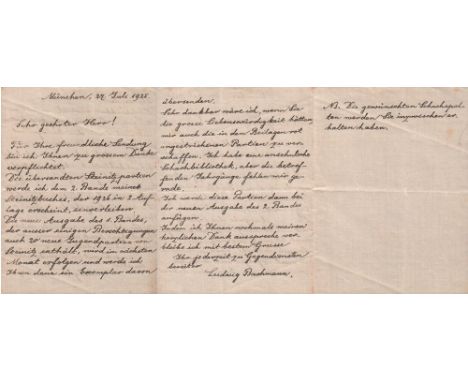 München, 27. Juli 1925.
Sehr geehrter Herr!
Für Ihre freundliche Sendung
bin ich Ihnen zu grossem Danke
verpflichtet.
Die übersandten Steinitzpartien
werde ich dem 2. Bande meines
Steinitzbuches, der 1926 in 2. Auf-
lage erscheint, einverleiben
Die neue Ausgabe des 1. Bandes,
der ausser einigen Berechtigungen
auch 20 neue Jugendpartien von
Steinitz enthält, wird im nächsten
Monat erfolgen und werde ich
Ihnen dann ein Exemplar davon
übersenden.
Sehr dankbar wäre ich, wenn Sie
die grosse Liebenswürdigkeit hätten,
mir auch die in den Beilagen rot
angestrichenen Partien zu ver-
schaffen. Ich habe eine ansehnliche
Schachbibliothek, aber die betref-
fenden Jahrgänge fehlen mir ge-
rade.
Ich werde diese Partien dann bei
der neuen Ausgabe des 2. Bandes
anfügen.
Indem ich Ihnen nochmals meinen
herzlichen Dank ausspreche ver-
bleibe ich mit bestem Grusse
Ihr jederzeit zu Gegendiensten
bereiter
Ludwig Bachmann.
NB. Die gewünschten Schachspal-
ten werden Sie inzwischen er-
halten haben.